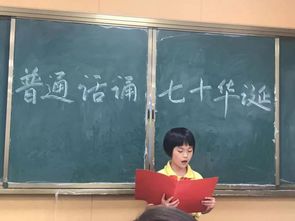 普通话诵 七十华诞